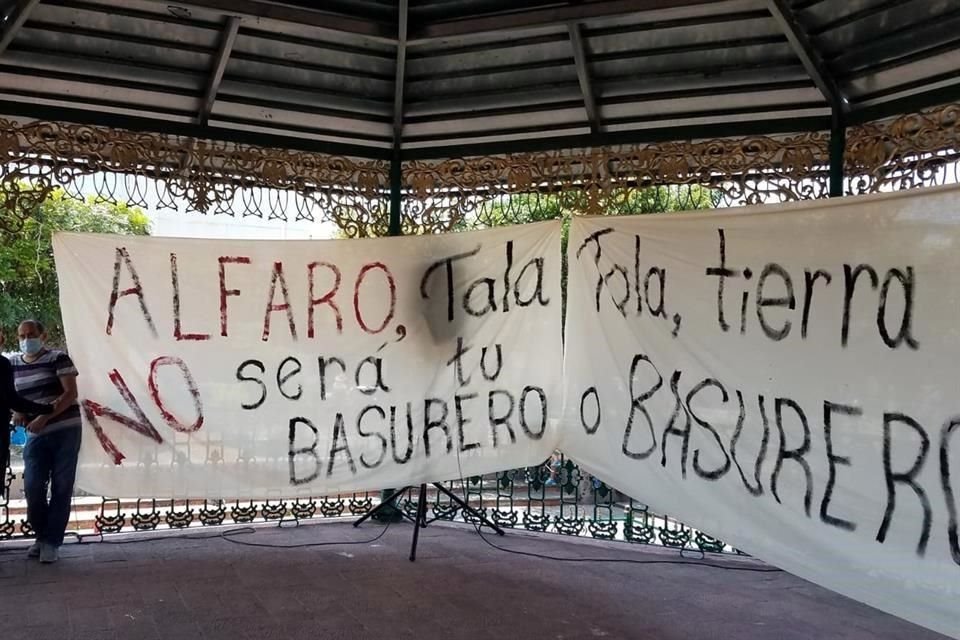 ALFARO, Tala
NO será tu
BASURERO
Tala, tierra
o BASURERO